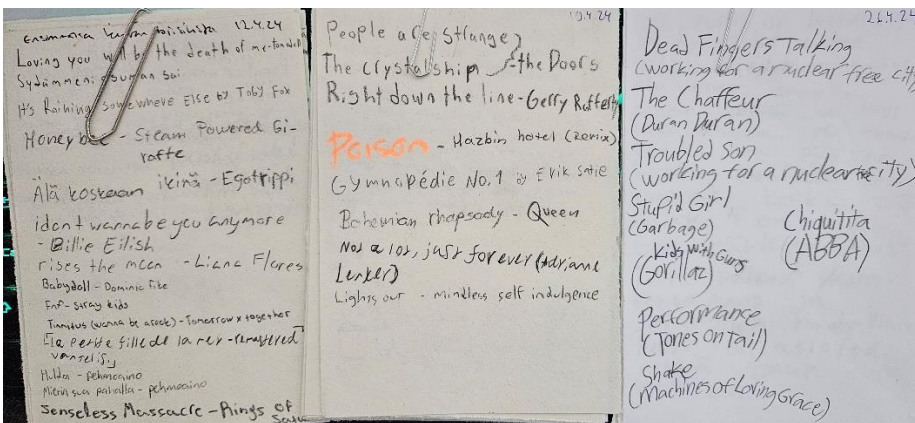 12.4.24
Loving you will be the death of me -
Sydämmeni
It's Raining Somewhere Else by Toby Fox
Honeybee - Steam Powered Gi-
raffe
Älä koskaan ikinä - Egotrippi
idontwannabeyouanymore
- Billie Eilish
rises the moon - Liana Flores
Babydoll - Dominic Fike
FNF - Stray kids
Tinnitus (wanna be a rock) - Tomorrow x together
La petite fille de la mer - remastered
vangelis
Hulda - pehmoaino
pehmoaino
Senseless Massacre - Rings of
19.4.24
People are strange
The crystal ship - the Doors
Right down the line - Gerry Raffert
Poison - Hazbin hotel (remix)
Gymnopédie No.1 by Erik Satie
Bohemian rhapsody - Queen
Not a lot, just forever (Adrianne
Lenker)
Lights out - mindless self indulgence
26.4.24
Dead Fingers Talking
(working for a nuclear free cit
The Chauffeur
(Duran Duran)
Troubled Son
(working for a nuclear free city)
Stupid Girl
(Garbage)
Chiquitita
(ABBA)
Kids With Guns
(Gorillaz)
Performance
(Tones on Tail)
Shake
(Machines of Loving Grace)